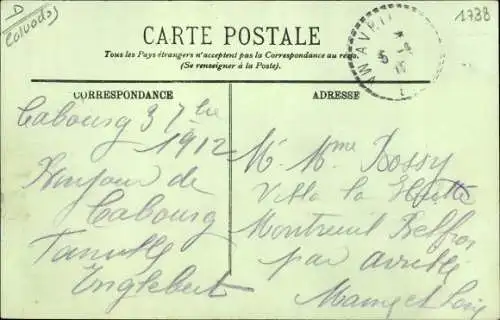 D
Calvados
1738
CARTE POSTALE
Tous les Pays étrangers n'acceptent pas la Correspondance au
(Se renseigner à la Poste).
CORRESPONDANCE
ADRESSE
Cabourg 3 7bre
1912
Bonjour de
Cabourg
Famille
Englebert
Mr Mme Rossy
Villa la
Montreuil Belfroi
par Avrillé
Maine et Loire
AVRIL